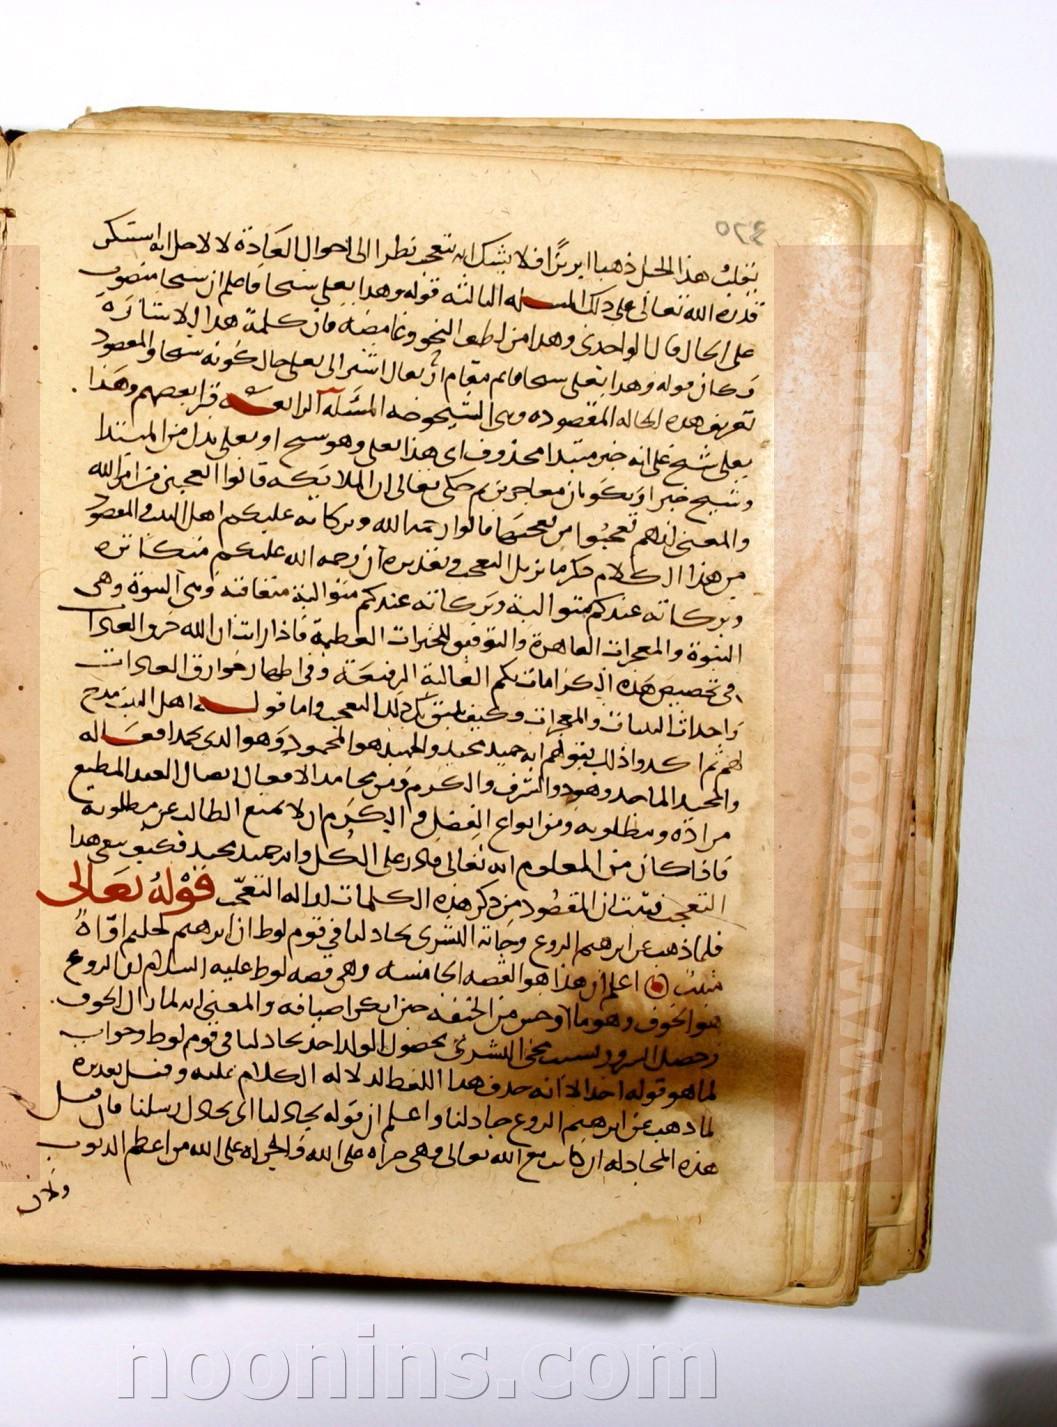 ٤٢٥
يقلب هذا الجبل ذهبا ابريزا فلا يشك انه يتعجب نظرا الى احوال العادة لا لاجل انه استنكر
قدرة الله تعالى على ذلك المسله الثالثه قوله وهذا بعلي شيخا فاعلم ان شيخا منصوب
على الحال قال الواحدي وهذا من لطيف النحو وغامضه فان كلمة هذا للاشارة
فكان قوله وهذا بعلي شيخا قايم مقام ان يقال اشير الى بعلي حال كونه شيخا والمقصود
تعريف هذه الحاله المقصوده وهي الشيخوخه المسئله الرابعه قرا بعضهم وهذا
بعلي شيخ على انه خبر مبتدا محذوف اى هذا بعلي وهو شيخ او بعلي بدل من المبتدا
وشيخ خبر او يكونان معا خبرين ثم حكى تعالى ان الملايكه قالوا اتعجبين من امر الله
والمعنى انهم تعجبوا من تعجبها قالوا رحمة الله وبركاته عليكم اهل البيت والمقصود
من هذا الكلام ذكر ما يزيل التعجب وتقديره ان رحمه الله عليكم متكاثره
وبركاته عندكم متوالية وبركاته عندكم متوالية متعاقبة وهي النبوة وهي
النبوة والمعجزات القاهرة والتوفيق للخيرات العظيمة فاذا رات ان الله خرق العادات
في تخصيص هذه الكرامات بكم العالية الرفيعة وفي اظهار خوارق العادات
واحداث البينات والمعجزات وكيف يليق بك ذلك التعجب واما قوله اهل البيت مدح
لهم ثم اكدوا ذلك بقولهم انه حميد مجيد والحميد هو المحمود وهو الذى تحمد افعاله
والمجيد الماجد وهو ذو الشرف والكرم ومن محامد الافعال ايصال العبد المطيع
مرادة ومطلوبه ومن انواع الفضل و الكرم ان لا يمنع الطالب عن مطلوبه
فاذا كان من المعلوم انه تعالى قادر على الكل وانه حميد مجيد فكيف يبقى هذا
التعجب فثبت ان المقصود من ذكر هذه الكلمات ازاله التعجب قوله تعالى
فلما ذهب عن ابرهيم الروع وجاته البشرى يجادلنا في قوم لوط ان ابرهيم لحليم اواه
منيب اعلم ان هذا هو القصه الخامسه وهي قصه لوط عليه السلام ان الروع
هو الخوف وهو ما اوجس من الخيفة حين انكر اضيافه والمعنى انه لما زال الخوف
وحصل السرور بسبب مجى البشرى بحصول الولد اخذ يجادلنا في قوم لوط وجواب
لما هو قوله اخذ الا انه حذف هذا اللفظ لدلاله الكلام عليه وقيل تقديره
لما ذهب عن ابرهيم الروع جادلنا واعلم ان قوله يجادلنا اى يجادل رسلنا فان قيل
هذه المجادله ان كانت مع الله تعالى فهي جراه على الله والجراه على الله من اعظم الذنوب
ولان
www.noonins.com
noonins.com